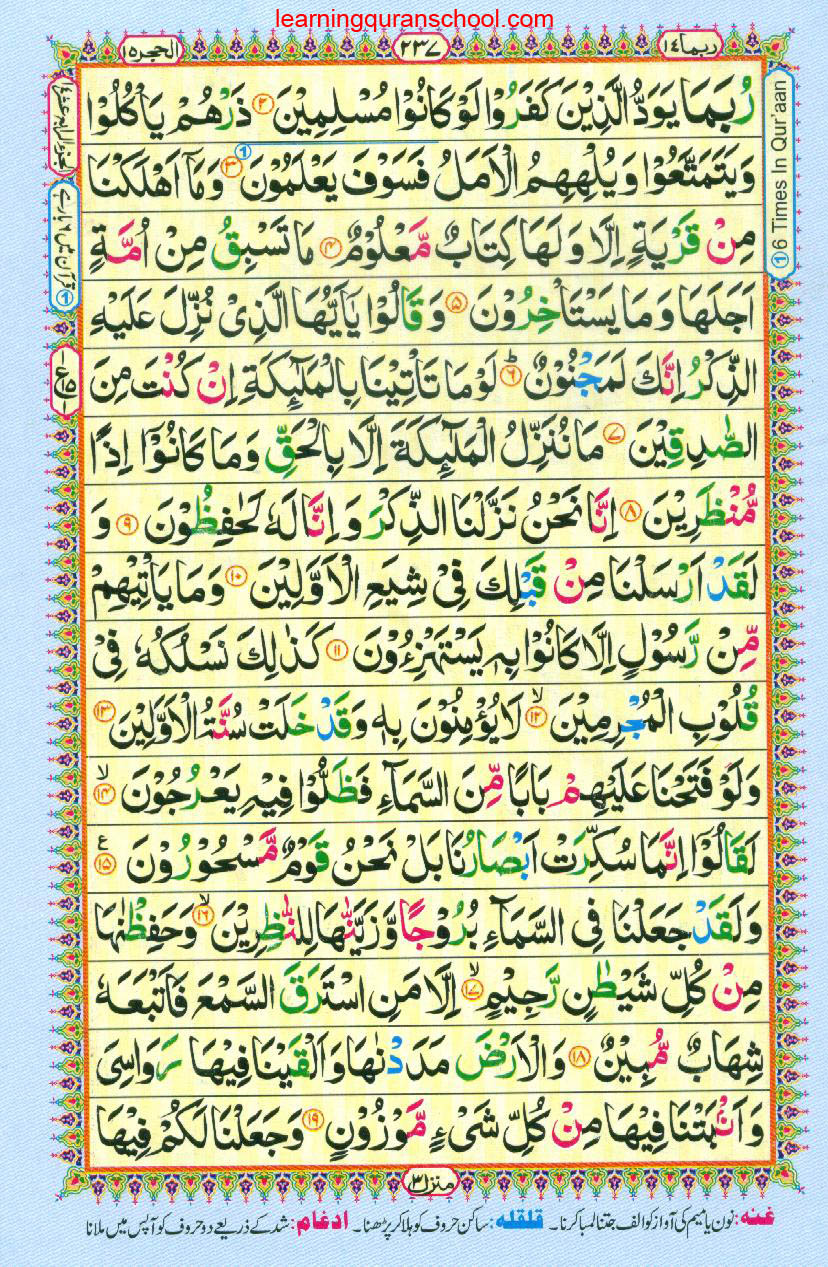 learningquranschool.com
ربما ١٤
٢٣٧
الحجر ١٥
رُبَمَا يَوَدُّ الَّذِيْنَ كَفَرُوْا لَوْ كَانُوْا مُسْلِمِيْنَ ۲ ذَرْهُمْ يَاْكُلُوْا
وَيَتَمَتَّعُوْا وَيُلْهِهِمُ الْاَمَلُ فَسَوْفَ يَعْلَمُوْنَ ۳ وَمَاۤ اَهْلَكْنَا
مِنْ قَرْيَةٍ اِلَّا وَلَهَا كِتَابٌ مَّعْلُوْمٌ ۴ مَا تَسْبِقُ مِنْ اُمَّةٍ
اَجَلَهَا وَمَا يَسْتَاْخِرُوْنَ ۵ وَقَالُوْا يٰۤاَيُّهَا الَّذِيْ نُزِّلَ عَلَيْهِ
الذِّكْرُ اِنَّكَ لَمَجْنُوْنٌ ۶ لَوْ مَا تَاْتِيْنَا بِالْمَلٰٓئِكَةِ اِنْ كُنْتَ مِنَ
الصّٰدِقِيْنَ ۷ مَا نُنَزِّلُ الْمَلٰٓئِكَةَ اِلَّا بِالْحَقِّ وَمَا كَانُوْۤا اِذًا
مُّنْظَرِيْنَ ۸ اِنَّا نَحْنُ نَزَّلْنَا الذِّكْرَ وَاِنَّا لَهٗ لَحٰفِظُوْنَ ۹ وَ
لَقَدْ اَرْسَلْنَا مِنْ قَبْلِكَ فِيْ شِيَعِ الْاَوَّلِيْنَ ۱۰ وَمَا يَاْتِيْهِمْ
مِّنْ رَّسُوْلٍ اِلَّا كَانُوْا بِهٖ يَسْتَهْزِءُوْنَ ۱۱ كَذٰلِكَ نَسْلُكُهٗ فِيْ
قُلُوْبِ الْمُجْرِمِيْنَ ۱۲ لَا يُؤْمِنُوْنَ بِهٖ وَقَدْ خَلَتْ سُنَّةُ الْاَوَّلِيْنَ ۱۳
وَلَوْ فَتَحْنَا عَلَيْهِمْ بَابًا مِّنَ السَّمَآءِ فَظَلُّوْا فِيْهِ يَعْرُجُوْنَ ۱۴
لَقَالُوْۤا اِنَّمَا سُكِّرَتْ اَبْصَارُنَا بَلْ نَحْنُ قَوْمٌ مَّسْحُوْرُوْنَ ۱۵
وَلَقَدْ جَعَلْنَا فِي السَّمَآءِ بُرُوْجًا وَّزَيَّنّٰهَا لِلنّٰظِرِيْنَ ۱۶ وَحَفِظْنٰهَا
مِنْ كُلِّ شَيْطٰنٍ رَّجِيْمٍ ۱۷ اِلَّا مَنِ اسْتَرَقَ السَّمْعَ فَاَتْبَعَهٗ
شِهَابٌ مُّبِيْنٌ ۱۸ وَالْاَرْضَ مَدَدْنٰهَا وَاَلْقَيْنَا فِيْهَا رَوَاسِيَ
وَاَنْۢبَتْنَا فِيْهَا مِنْ كُلِّ شَيْءٍ مَّوْزُوْنٍ ۱۹ وَجَعَلْنَا لَكُمْ فِيْهَا
① 6 Times In Qur'aan
① قرآن میں ۶ بارے
منزل ۳
غنه: نون یا میم کی آواز کو الف جتنا لمبا کرنا۔ قلقله: ساکن حروف کو ہلا کر پڑھنا۔ ادغام: شد کے ذریعے دو حروف کو آپس میں ملانا